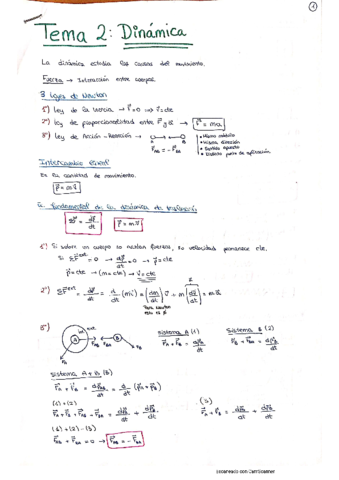 1
Tema 2: Dinámica
La dinámica estudia las causas del movimiento.
Fuerza → Interacción entre cuerpos
3 Leyes de Newton
1ª) Ley de la inercia → F⃗=0 ⇒ v⃗=cte
2ª) Ley de proporcionalidad entre F⃗ y a⃗ → F⃗=ma⃗
3ª) Ley de Acción-Reacción →
A B
F⃗AB = -F⃗BA
• Mismo módulo
• Misma dirección
• Sentido opuesto
• Distinto punto de aplicación
Es la cantidad de movimiento.
p⃗=m·v⃗
fundamental de la dinámica de traslación
ΣF⃗ = dp⃗/dt
p⃗=m·v⃗
1º) Si sobre un cuerpo no actúan fuerzas, su velocidad permanece cte.
Si ΣF⃗ext = 0 → dp⃗/dt = 0 → p⃗=cte
p⃗=cte → (m=cte) → v⃗=cte
2º) ΣF⃗ext = dp⃗/dt = d/dt (mv⃗) = (dm/dt) v⃗ + m (dv⃗/dt) = m·a⃗
3º)
int ext
A F⃗AB F⃗BA B
F⃗A F⃗B
Sistema A (1)
F⃗A + F⃗AB = dp⃗A/dt
Sistema B (2)
F⃗B + F⃗BA = dp⃗B/dt
Sistema A + B (3)
F⃗A + F⃗B = dp⃗AB/dt = d/dt (p⃗A + p⃗B)
(1) + (2)
F⃗A + F⃗B + F⃗AB + F⃗BA = dp⃗A/dt + dp⃗B/dt
(3)
F⃗A + F⃗B = dp⃗A/dt + dp⃗B/dt
(1) + (2) - (3)
F⃗AB + F⃗BA = 0 → F⃗AB = -F⃗BA
Escaneado con CamScanner